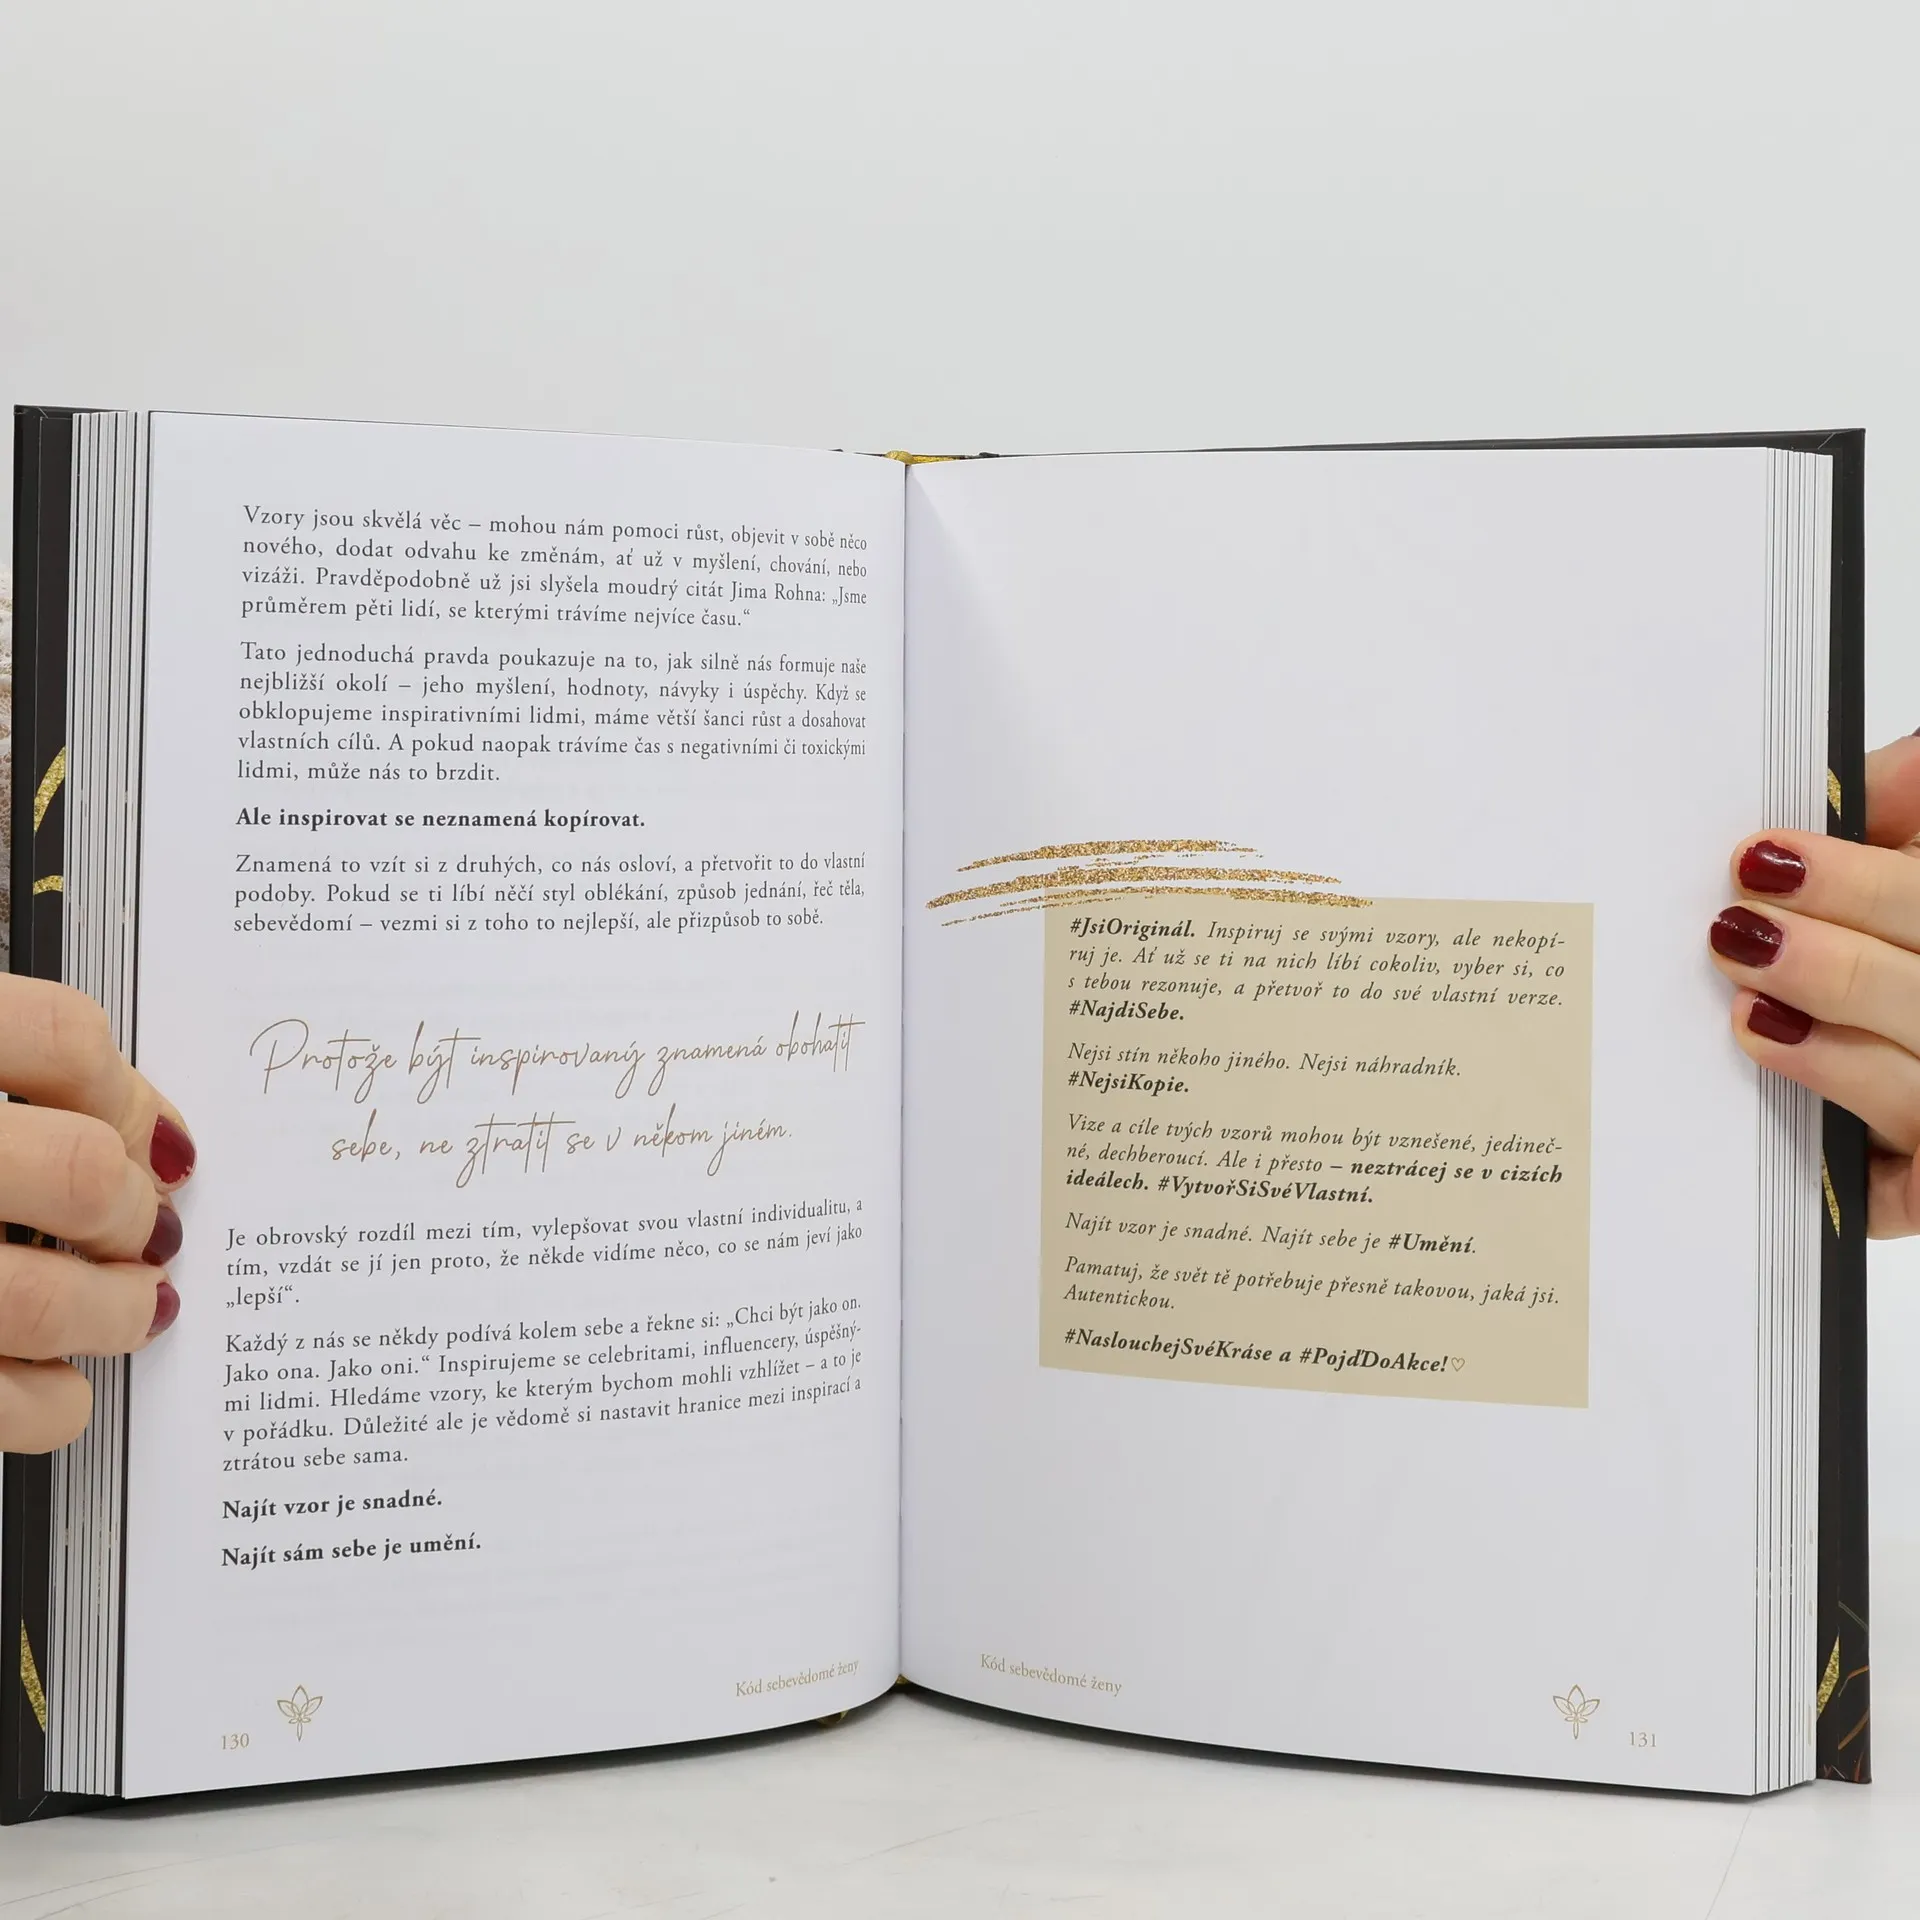 Vzory jsou skvělá věc – mohou nám pomoci růst, objevit v sobě něco
nového, dodat odvahu ke změnám, ať už v myšlení, chování, nebo
vizáži. Pravděpodobně už jsi slyšela moudrý citát Jima Rohna: „Jsme
průměrem pěti lidí, se kterými trávíme nejvíce času.“
Tato jednoduchá pravda poukazuje na to, jak silně nás formuje naše
nejbližší okolí – jeho myšlení, hodnoty, návyky i úspěchy. Když se
obklopujeme inspirativními lidmi, máme větší šanci růst a dosahovat
vlastních cílů. A pokud naopak trávíme čas s negativními či toxickými
lidmi, může nás to brzdit.
Ale inspirovat se neznamená kopírovat.
Znamená to vzít si z druhých, co nás osloví, a přetvořit to do vlastní
podoby. Pokud se ti líbí něčí styl oblékání, způsob jednání, řeč těla,
sebevědomí – vezmi si z toho to nejlepší, ale přizpůsob to sobě.
Protože být inspirovaný znamená obohatit
sebe, ne ztratit se v někom jiném.
Je obrovský rozdíl mezi tím, vylepšovat svou vlastní individualitu, a
tím, vzdát se jí jen proto, že někde vidíme něco, co se nám jeví jako
„lepší“.
Každý z nás se někdy podívá kolem sebe a řekne si: „Chci být jako on.
Jako ona. Jako oni.“ Inspirujeme se celebritami, influencery, úspěšný-
mi lidmi. Hledáme vzory, ke kterým bychom mohli vzhlížet – a to je
v pořádku. Důležité ale je vědomě si nastavit hranice mezi inspirací a
ztrátou sebe sama.
Najít vzor je snadné.
Najít sám sebe je umění.
Kód sebevědomé ženy
130
#JsiOriginál. Inspiruj se svými vzory, ale nekopí-
ruj je. Ať už se ti na nich líbí cokoliv, vyber si, co
s tebou rezonuje, a přetvoř to do své vlastní verze.
#NajdiSebe.
Nejsi stín někoho jiného. Nejsi náhradník.
#NejsiKopie.
Vize a cíle tvých vzorů mohou být vznešené, jedineč-
né, dechberoucí. Ale i přesto – neztrácej se v cizích
ideálech. #VytvořSiSvéVlastní.
Najít vzor je snadné. Najít sebe je #Umění.
Pamatuj, že svět tě potřebuje přesně takovou, jaká jsi.
Autentickou.
#NaslouchejSvéKráse a #PojďDoAkce!♡
Kód sebevědomé ženy
131